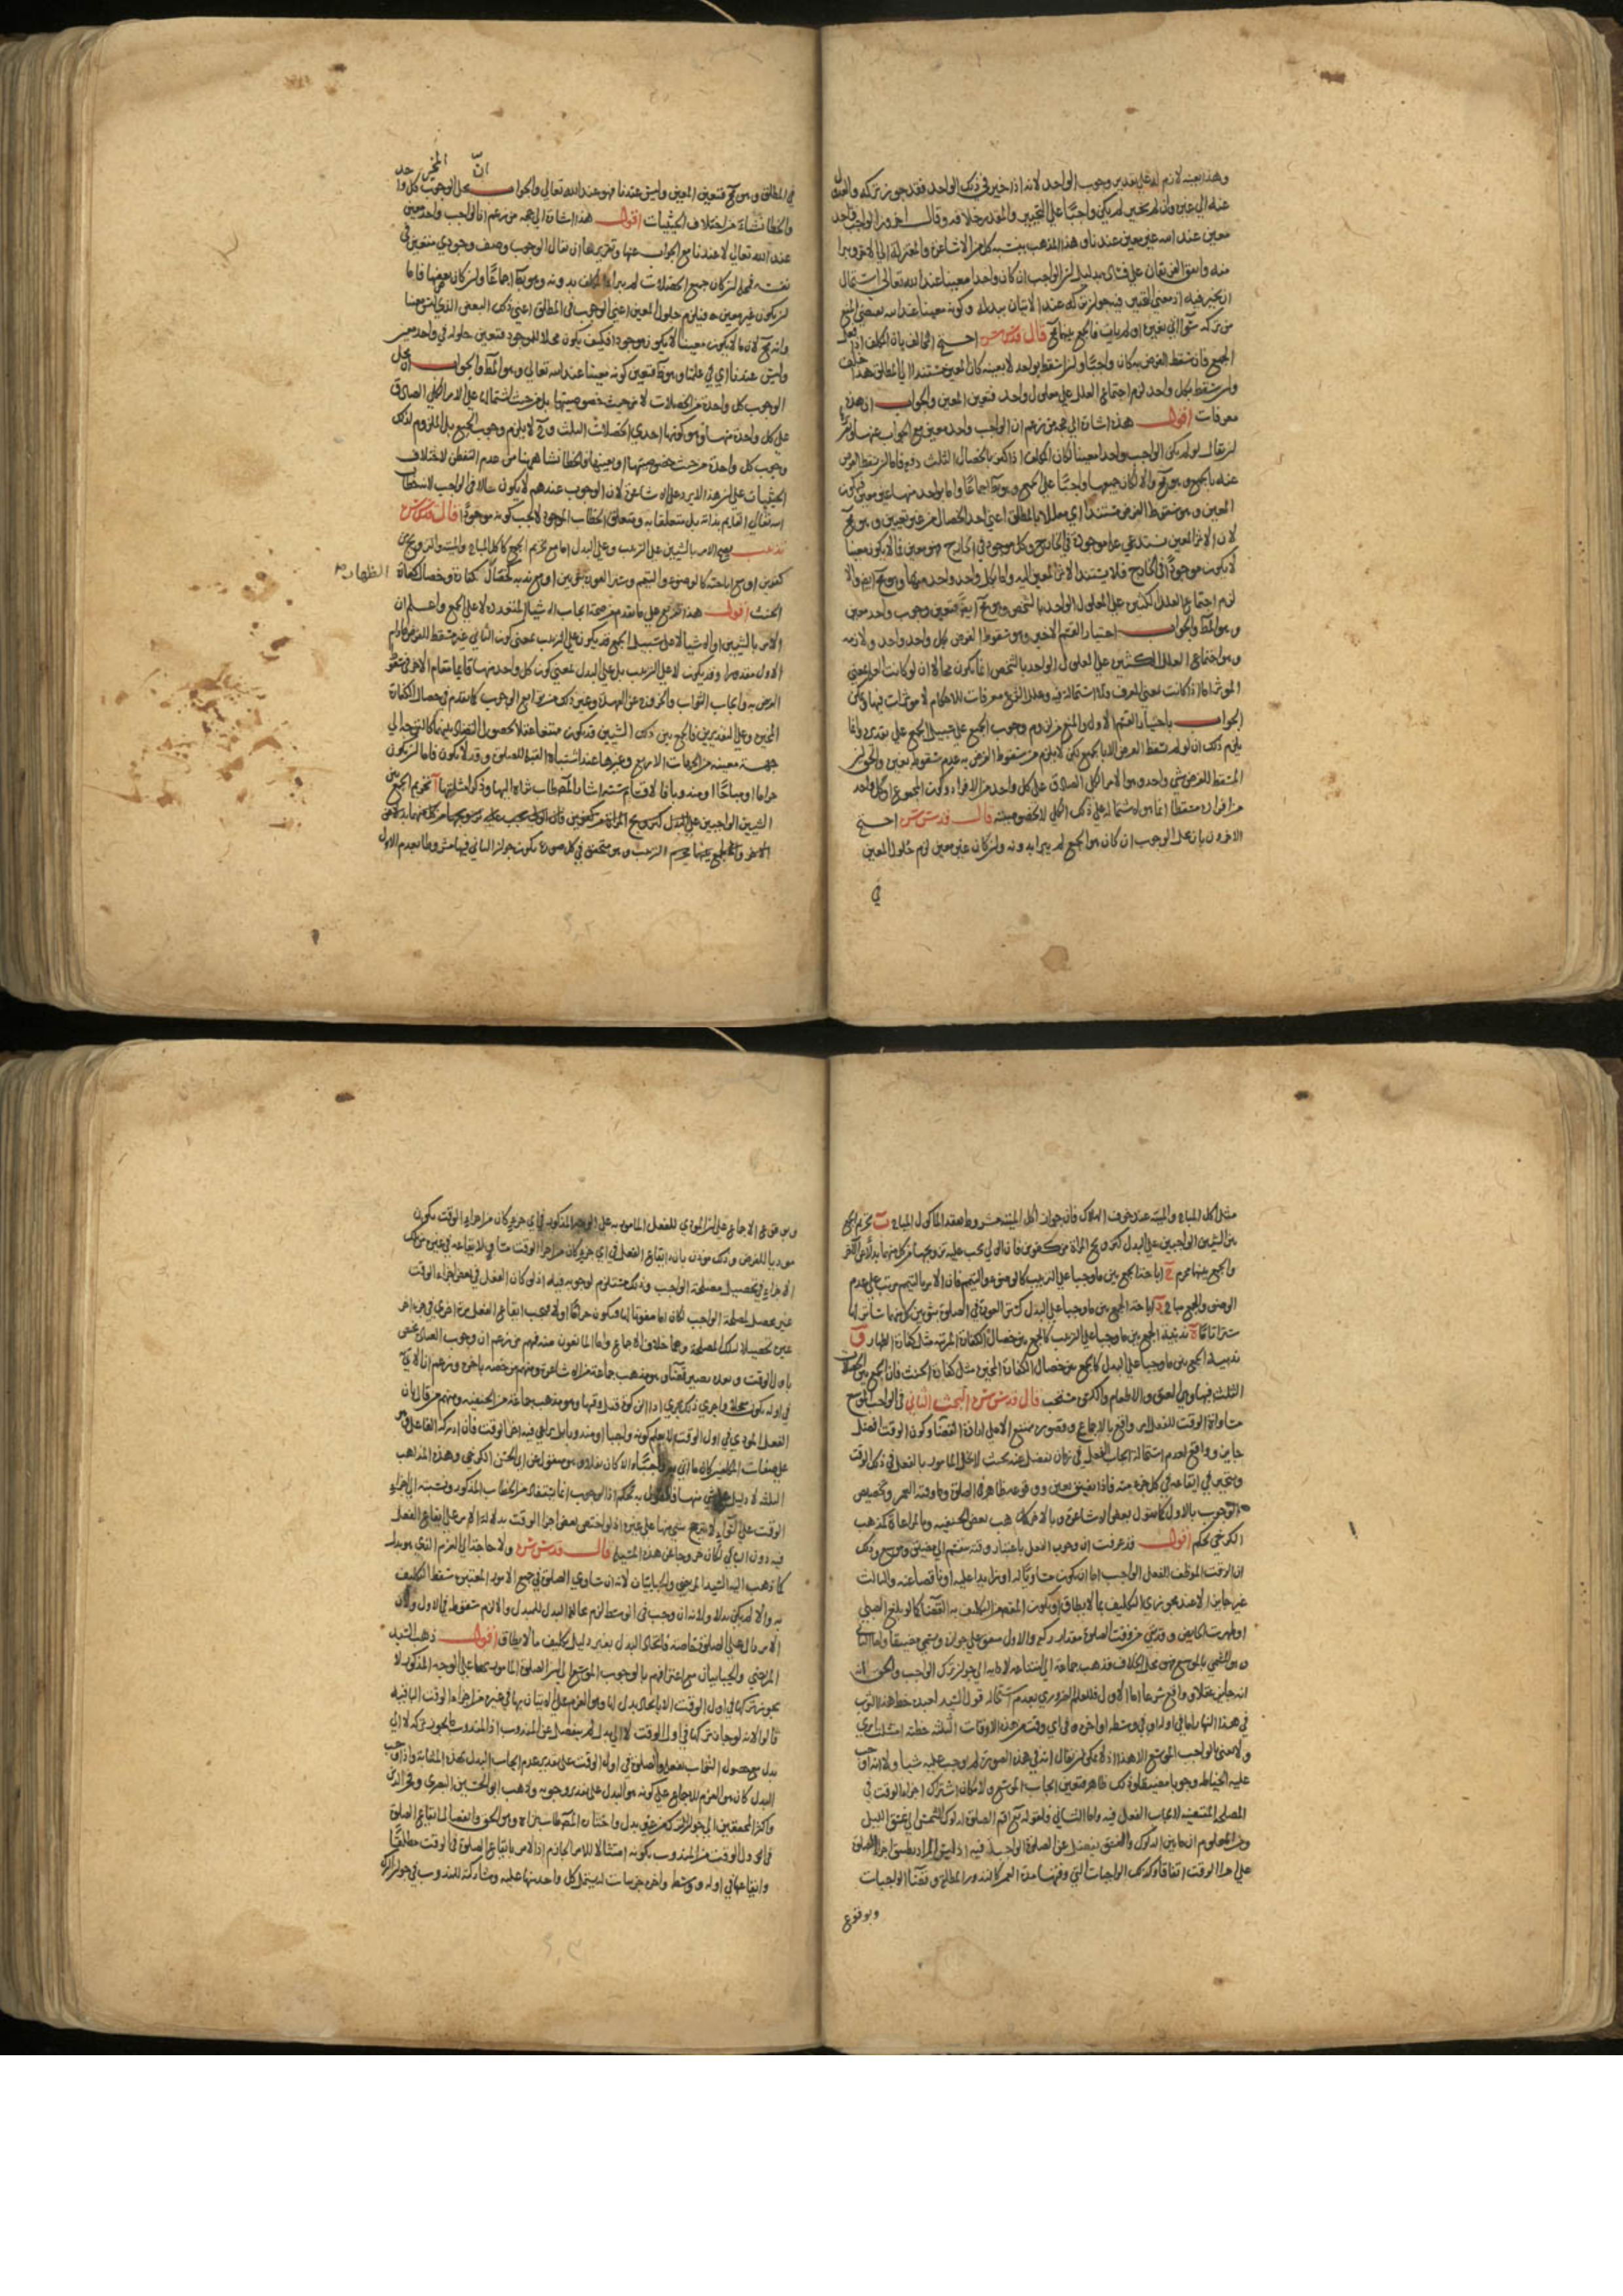 وهذا بعينه لازم له على تقدير وجوب الواحد لانه اذا خير في ذلك الواحد فقد جوز تركه والعدول
عنه الى غيره وان لم يخير لم يكن واجبا على التخيير والمقدر خلافه وقال اخرون الواجب واحد
معين عند الله غير معين عندنا وهذا المذهب ينسبه كل من الاشاعرة والمعتزلة الى الاخر ويبرا
منه واتفق الفريقان على فساده بدليل ان الواجب ان كان واحدا معينا عند الله تعالى استحال
التخيير فيه اذ معنى التخيير فيه جواز تركه عند الاتيان ببدله وكونه معينا عند الله يقتضي المنع
من تركه سواء اتى بغيره او لم يات فالجمع بينهما مح قال قدس سره احتج المخالف بان المكلف اذا فعل
الجميع فان سقط الفرض به كان واجبا وان سقط بواحد لا بعينه كان المعين مستندا الى المطلق هذا خلف
وان سقط بكل واحد لزم اجتماع العلل على معلول واحد فتعين المعين والجواب ان هذه
معرفات اقول هذه اشارة الى حجة من زعم ان الواجب واحد معين مع الجواب عنها
ان يقال لو لم يكن الواجب واحدا معينا لكان المكلف اذا كفر بالخصال الثلث دفعة فاما ان يسقط الفرض
عنه بالجميع وهو مح والا لكان جميعها واجبا على الجميع وهو بط اجماعا واما بواحد منها غير معين فيكون
المعين وهو سقوط الفرض مستندا اي معللا بالمطلق اعني احد الخصال من غير تعيين وهو مح
لان الاثر المعين يستدعي علة موجودة في الخارج وكل موجود في الخارج فهو معين فما لا يكون معينا
لا يكون موجودا في الخارج فلا يستند الاثر المعين اليه واما بكل واحد واحد منها وهو مح ايضا والا
لزم اجتماع العلل الكثيرة على المعلول الواحد بالشخص وهو مح ايضا فتعين وجوب واحد معين
وهو المط والجواب اختيار القسم الاخير وهو سقوط الفرض بكل واحد واحد ولازمه
وهو اجتماع العلل الكثيرة على المعلول الواحد بالشخص انما يكون محالا ان لو كانت العلة بمعنى
الموثر اما اذا كانت بمعنى المعرف فلا استحالة فيه وعلل الشرع معرفات للاحكام لا موثرات فيها ويمكن
الجواب باختيار القسم الاول والمنع من لزوم وجوب الجميع على سبيل الجمع على تقديره وانما
يلزم ذلك ان لو لم يسقط الفرض الا بالجميع لكن لا يلزم من سقوط الفرض به عدم سقوطه بغيره والحق ان
المسقط للفرض شيء واحد وهو الامر الكلي الصادق على كل واحد من الافراد وكون المجموع او كل واحد
من افراده مسقطا انما هو لاشتماله على ذلك الكلي لا لخصوصيته قال قدس سره احتج
الاخرون بان محل الوجوب ان كان هو الجميع لم يبرا بدونه وان كان غير معين لزم حلول المعين
في
في المطلق وهو مح فتعين المعين وليس عندنا فهو عند الله تعالى والجواب ان محل الوجوب المخير كل واحد
والخطا نشا من اختلاف الحيثيات اقول هذا اشارة الى حجة من زعم ان الواجب واحد معين
عند الله تعالى لا عندنا مع الجواب عنها وتقريرها ان يقال الوجوب وصف وجودي متعين في
نفسه فمحله ان كان جميع الخصلات لم يبرا المكلف بدونه وهو بط اجماعا وان كان بعضها فاما
ان يكون غير معين فيلزم حلول المعين اعني الوجوب في المطلق اعني ذلك البعض الذي ليس معينا
وانه مح لان ما لا يكون معينا لا يكون موجودا فكيف يكون محلا للموجود فتعين حلوله في واحد معين
وليس عندنا اي في علمنا وهو بط فتعين كونه معينا عند الله تعالى وهو المط والجواب ان محل
الوجوب كل واحدة من الخصلات لا من حيث خصوصيتها بل من حيث اشتمالها على الامر الكلي الصادق
على كل واحدة منها وهو كونها احدى الخصلات الثلث وح لا يلزم وجوب الجميع بل الملزوم لذلك
وجوب كل واحدة من حيث خصوصيتها او بعينها والخطا نشا ههنا من عدم التفطن لاختلاف
الحيثيات على ان هذا لا يرد على الاشاعرة لان الوجوب عندهم لا يكون حالا في الواجب لانه خطاب
الله تعالى القايم بذاته بل متعلقا به ومتعلق الخطاب الموجود لا يجب كونه موجودا قال قدس سره
تذنيب يصح الامر بالشيئين على الترتيب وعلى البدل اما مع تحريم الجمع كاكل المباح والميتة والتزويج من
كفوين او مع اباحته كالوضوء والتيمم وستر العورة بثوبين او مع ندبه كخصال كفارة الظهار وخصال كفارة
الحنث اقول هذا تفريع على ما تقدم من صحة ايجاب الاشياء المتعددة لا على الجمع واعلم ان
الامر بالشيئين او الاشياء لا على سبيل الجمع قد يكون على الترتيب بمعنى كون الثاني غير مسقط للفرض ما دام
الاول مقدورا وقد يكون لا على الترتيب بل على البدل بمعنى كون كل واحد منها قايما مقام الاخر في سقوط
الفرض به وايجاب الثواب والخروج عن العهدة وغير ذلك من توابع الوجوب كما تقدم في خصال الكفارة
المخيرة وعلى التقديرين فالجمع بين ذلك الشيئين قد يكون ممتنعا عقلا لحصول التضاد بينهما كالتوجه الى
جهة معينة من الجهات الاربع وغيرها عند اشتباه القبلة للمصلي وقد لا يكون فاما ان يكون
حراما او مباحا او مندوبا فالاقسام ستة اشار المص طاب ثراه اليها وذكر امثلتها آ تحريم الجمع بين
الشيئين الواجبين على البدل كتزويج المراة من كفوين فان الولي يجب عليه تزويجها من كل منهما بدلا عن
الاخر والجمع بينهما محرم الترتيب وهو متحقق في كل صورة يكون جواز الثاني فيها مشروطا بعدم الاول
مثل اكل المباح والميتة عند خوف الهلاك فان جواز اكل الميتة مشروط بفقد الماكول المباح ب تحريم الجمع
بين الشيئين الواجبين على البدل كتزويج المراة من كفوين فان الولي يجب عليه تزويجها من كل منهما بدلا عن الاخر
والجمع بينهما محرم ج اباحة الجمع بين ما وجبا على الترتيب كالوضوء والتيمم فان الامر بالتيمم مرتب على عدم
الوضوء والجمع مباح د اباحة الجمع بين ما وجبا على البدل كستر العورة في الصلوة بثوبين كل منهما ساتر لها
سترا تاما ه ندبية الجمع بين ما وجبا على الترتيب كالجمع بين خصال الكفارة المرتبة مثل كفارة الظهار و
ندبية الجمع بين ما وجبا على البدل كالجمع بين خصال الكفارة المخيرة مثل كفارة الحنث فان الجمع بين الخصلات
الثلث فيها وهي العتق والاطعام والكسوة مستحب قال قدس سره البحث الثاني في الواجب الموسع
مساواة الوقت للفعل امر واقع بالاجماع وقصوره ممتنع الا على ارادة القضا وكون الوقت افضل
جايز وواقع لعدم استحالة ايجاب الفعل في زمان يفضل عنه بحيث لا يخلي المامور بالفعل في ذلك الوقت
ويتخير في ايقاعه في كل جزء منه فاذا تضيق تعين ووقوعه ظاهر في الصلوة وما وقته العمر وتخصيص
الوجوب بالاول كما يقول بعض الاشاعرة وبالاخر كما ذهب بعض الحنفية وبالمراعاة كمذهب
الكرخي تحكم اقول قد عرفت ان وجوب الفعل باعتبار وقته ينقسم الى مضيق وموسع وذلك
ان الوقت الموظف للفعل الواجب اما ان يكون مساويا له او زايدا عليه او ناقصا عنه والثالث
غير جايز الا عند مجوزي التكليف بما لا يطاق او يكون المقصود من التكليف به القضا كما لو بلغ الصبي
او طهرت الحايض وقد بقي من وقت الصلوة مقدار ركعة والاول متفق على جوازه ويسمى مضيقا واما الثاني
وهو المسمى بالموسع فهو محل الخلاف فذهب جماعة الى امتناعه لادائه الى جواز ترك الواجب والحق
انه جايز عقلا وواقع شرعا اما الاول فللعلم الضروري بعدم استحالة قول السيد لعبده خط هذا الثوب
في هذا النهار اما في اوله او في وسطه او اخره وفي اي وقت من هذه الاوقات الثلثة خطته امتثلت امري
ولا نعني بالواجب الموسع الا هذا اذ لا يمكن ان يقال انه في هذه الصورة لم يوجب عليه شيا ولا انه اوجب
عليه الخياطة وجوبا مضيقا وذلك ظاهر فتعين ايجاب الموسع ولامكان اشتراك اجزاء الوقت في
المصلحة المقتضية لايجاب الفعل فيه واما الثاني فلقوله تع اقم الصلوة لدلوك الشمس الى غسق الليل
ومن المعلوم ان ما بين الدلوك والغسق يفضل عن الصلوة الواجبة فيه اذ ليس المراد تطبيق اجزاء الصلوة
على اجزا الوقت اتفاقا وكذلك الواجبات التي وقتها مدة العمر كالنذور المطلق وقضا الواجبات
ولوقوع
ولوقوع الاجماع على ان المؤدي للفعل المامور به على الوجه المذكور في اي جزء كان من اجزاء الوقت يكون
مؤديا للفرض وذلك مؤذن بان ايقاع الفعل في اي جزء كان من اجزا الوقت مساو لايقاعه في غيره من تلك
الاجزاء في تحصيل مصلحة الواجب وذلك مستلزم لوجوبه فيه اذ لو كان الفعل في بعض اجزاء الوقت
غير محصل لمصلحة الواجب لكان اما مفوتا لها فيكون حراما او لا فيجب ايقاع الفعل مرة اخرى في جزء اخر
غيره تحصيلا لتلك المصلحة وهما خلاف الاجماع واما المانعون منه فمنهم من زعم ان وجوب العبادة يختص
باول الوقت وبعده يصير قضا وهو مذهب جماعة من الاشاعرة ومنهم من خصه باخره وزعم ان الاتي به
في اوله يكون معجلا واجرى ذلك مجرى اداء الزكوة قبل وقتها وهو مذهب جماعة من الحنفية ومنهم من قال بان
الفعل المؤدى في اول الوقت لا يعلم كونه واجبا او مندوبا بل يراعى فيه اخر الوقت فان ادركه الفاعل وهو
على صفات المكلفين كان ما اتى به واجبا والا كان نفلا وهو منقول عن ابي الحسن الكرخي وهذه المذاهب
الثلثة لا دليل على شيء منها فالقول به تحكم اذ الوجوب انما يستفاد من الخطاب المذكور ونسبته الى اجزاء
الوقت على السواء لا ترجح لشيء منها على غيره اذ لو اختص بعض اجزا الوقت بدلالة الامر على ايقاع الفعل
فيه دون الباقي لكان خروجا عن هذه المسئلة قال قدس سره ولا حاجة الى العزم الذي هو بدل
كما ذهب اليه السيد المرتضى والجبائيان لانه ان ساوى الصلوة في جميع الامور المعتبرة سقط التكليف
به والا لم يكن بدلا ولانه ان وجب في الوسط لزم مخالفة البدل للمبدل والا لزم سقوطه في الاول ولان
الامر دل على الصلوة خاصة فايجاب البدل بغير دليل تكليف ما لا يطاق اقول ذهب السيد
المرتضى والجبائيان مع اعترافهم بالوجوب الموسع الى ان الصلوة المامور بها على الوجه المذكور لا
يجوز تركها في اول الوقت الا بايجاد بدل لها وهو العزم على الاتيان بها في غيره من اجزاء الوقت الباقية
قالوا لانه لو جاز تركها في اول الوقت لا الى بدل لم ينفصل عن المندوب اذ المندوب ما يجوز تركه لا الى
بدل مع حصول الثواب بفعله والصلوة في اول الوقت على تقدير عدم ايجاب البدل بهذه المثابة واذا وجب
البدل كان هو العزم للاجماع على كونه هو البدل على تقدير وجوبه وذهب ابو الحسين البصري وفخر الدين
واكثر المحققين الى جواز الترك من غير بدل واختاره المص طاب ثراه وهو الحق وانفصال ايقاع الصلوة
في اول الوقت من المندوب بكونه امتثالا للامر الجازم اذ الامر بايقاع الصلوة في الوقت مطلقا
وايقاعها في اوله ووسطه واخره جزئيات له يشتمل كل واحد منها عليه ومشاركته للمندوب في جواز الترك